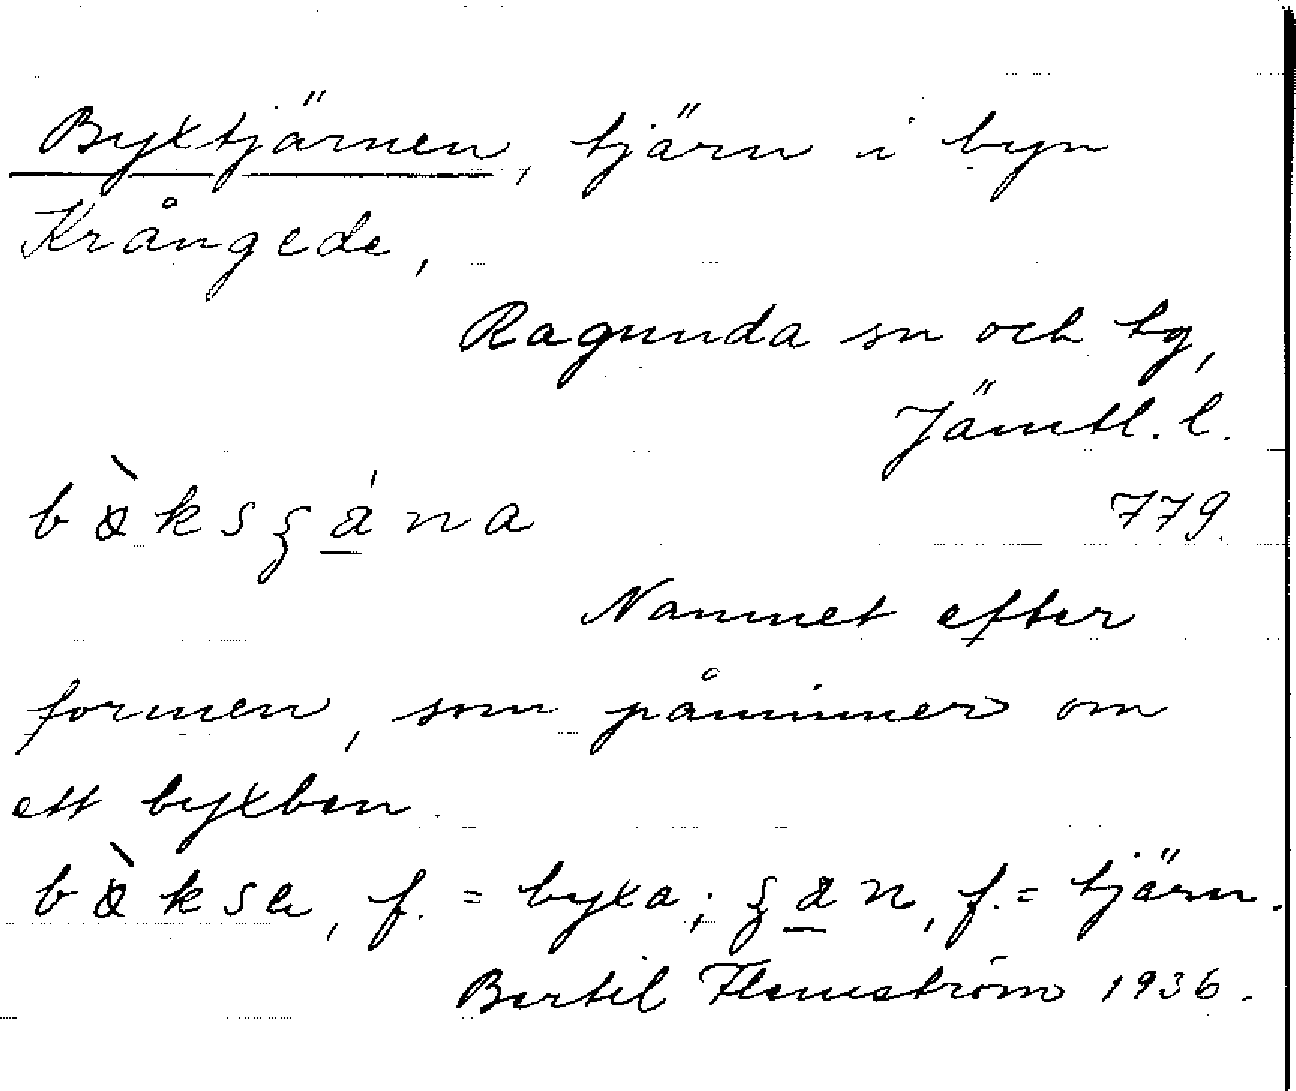 Byxtjärnen, tjärn i byn
Krångede,
Ragunda sn och tg,
Jämtl. l.
779.
Namnet efter
formen, som påminner om
ett byxben.
f. = byxa; f. = tjärn.
Bertil Flemström 1936.